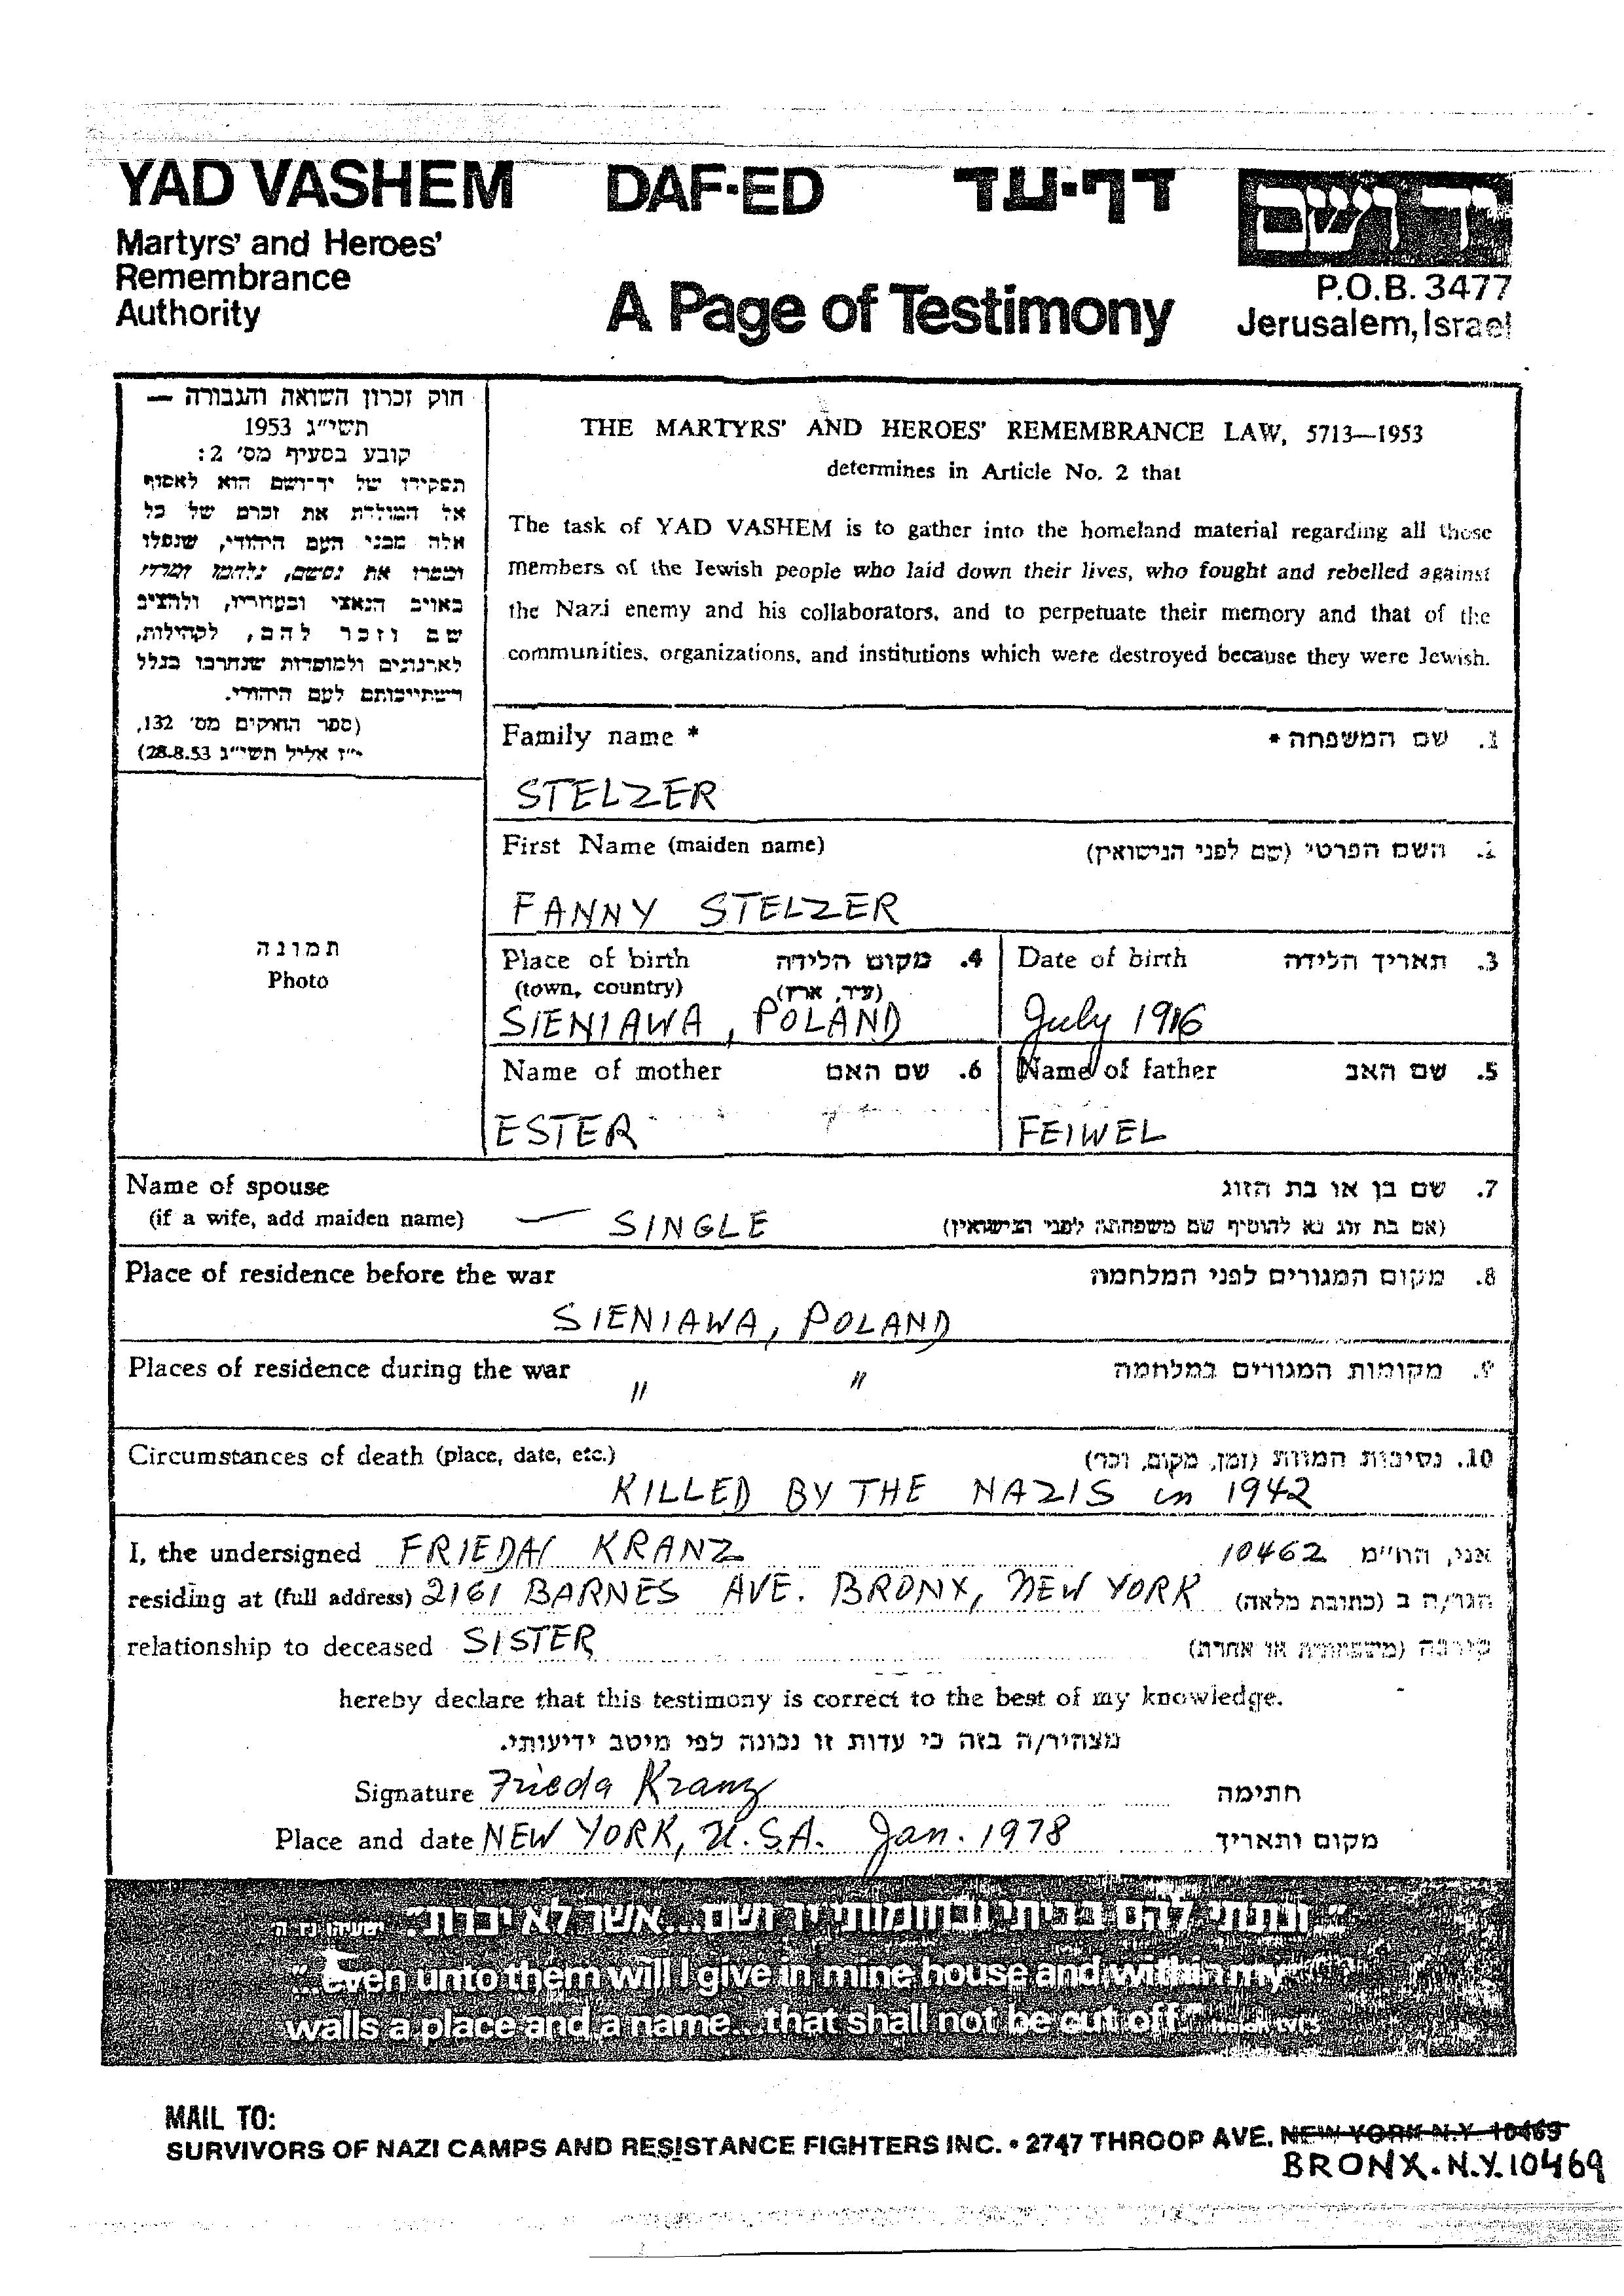 YAD VASHEM DAF-ED דף-עד יד ושם
Martyrs' and Heroes'
Remembrance
Authority
A Page of Testimony
P.O.B. 3477
Jerusalem, Israel
חוק זכרון השואה והגבורה —
תשי"ג 1953
קובע בסעיף מס' 2:
תפקידו של יד-ושם הוא לאסוף
אל המולדת את זכרם של כל
אלה מבני העם היהודי, שנפלו
ומסרו את נפשם, נלחמו ומרדו
באויב הנאצי ובעוזריו, ולהציב
שם וזכר להם, לקהילות,
לארגונים ולמוסדות שנחרבו בגלל
השתייכותם לעם היהודי.
(ספר החוקים מס' 132,
י"ז אלול תשי"ג 28.8.53)
THE MARTYRS' AND HEROES' REMEMBRANCE LAW, 5713—1953
determines in Article No. 2 that
The task of YAD VASHEM is to gather into the homeland material regarding all those
members of the Jewish people who laid down their lives, who fought and rebelled against
the Nazi enemy and his collaborators, and to perpetuate their memory and that of the
communities, organizations, and institutions which were destroyed because they were Jewish.
Family name * 1. שם המשפחה *
STELZER
First Name (maiden name) 2. השם הפרטי (שם לפני הנישואין)
FANNY STELZER
תמונה
Photo
Place of birth 4. מקום הלידה
(town, country) (עיר, ארץ)
SIENIAWA, POLAND
Date of birth 3. תאריך הלידה
July 1916
Name of mother 6. שם האם
ESTER
Name of father 5. שם האב
FEIWEL
Name of spouse 7. שם בן או בת הזוג
(if a wife, add maiden name) — SINGLE (אם בת זוג נא להוסיף שם משפחתה לפני הנישואין)
Place of residence before the war 8. מקום המגורים לפני המלחמה
SIENIAWA, POLAND
Places of residence during the war 9. מקומות המגורים במלחמה
" "
Circumstances of death (place, date, etc.) 10. נסיבות המוות (זמן, מקום, וכו')
KILLED BY THE NAZIS in 1942
I, the undersigned FRIEDA KRANZ 10462 אני, הח"מ
residing at (full address) 2161 BARNES AVE. BRONX, NEW YORK הגר/ה ב (כתובת מלאה)
relationship to deceased SISTER קירבה (משפחתית או אחרת)
hereby declare that this testimony is correct to the best of my knowledge.
מצהיר/ה בזה כי עדות זו נכונה לפי מיטב ידיעותי.
Signature Frieda Kranz חתימה
Place and date NEW YORK, U.S.A. Jan. 1978 מקום ותאריך
"ונתתי להם בביתי ובחומותי יד ושם...אשר לא יכרת". ישעיהו נו, ה
"...even unto them will I give in mine house and within my
walls a place and a name...that shall not be cut off."
MAIL TO:
SURVIVORS OF NAZI CAMPS AND RESISTANCE FIGHTERS INC. • 2747 THROOP AVE. NEW YORK N.Y. 10469
BRONX. N.Y. 10469